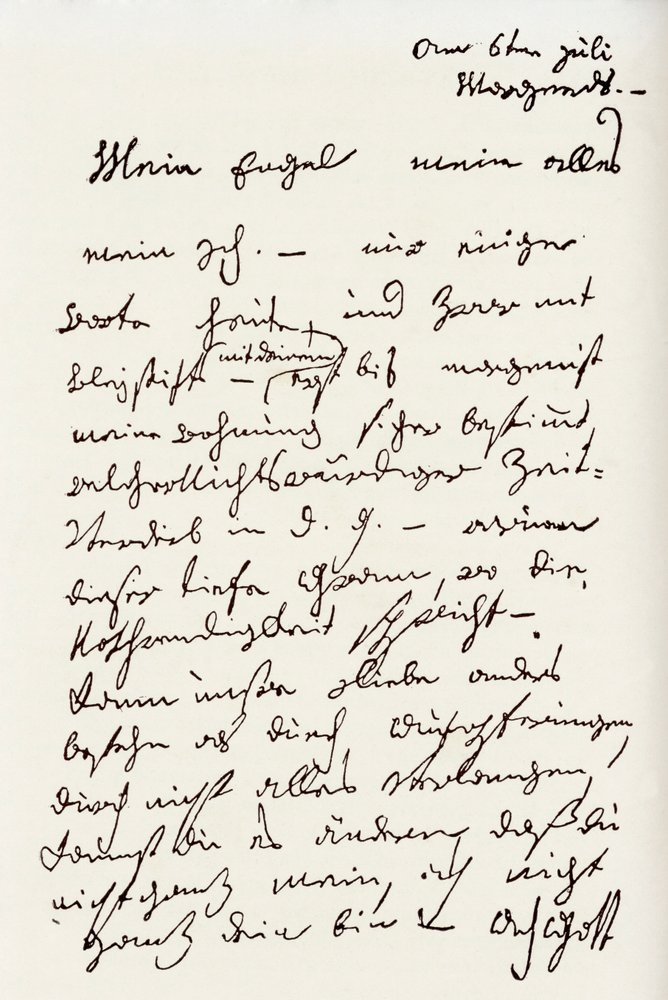 am 6ten juli
Morgends. –
Mein Engel mein alles
mein Ich. – nur einige
worte heute, und zwar mit
bleystift – mit deinem erst bis morgen ist
meine wohnung sicher bestimt,
welcher Nichtswürdiger Zeit=
Verderb in d. g. – warum
dieser tiefe Gram, wo die
Nothwendigkeit spricht –
Kann unsre Liebe anders
bestehn als durch Aufopferungen,
durch nicht alles verlangen,
kannst du es ändern, daß du
nicht ganz mein, ich nicht
ganz dein bin – Ach Gott